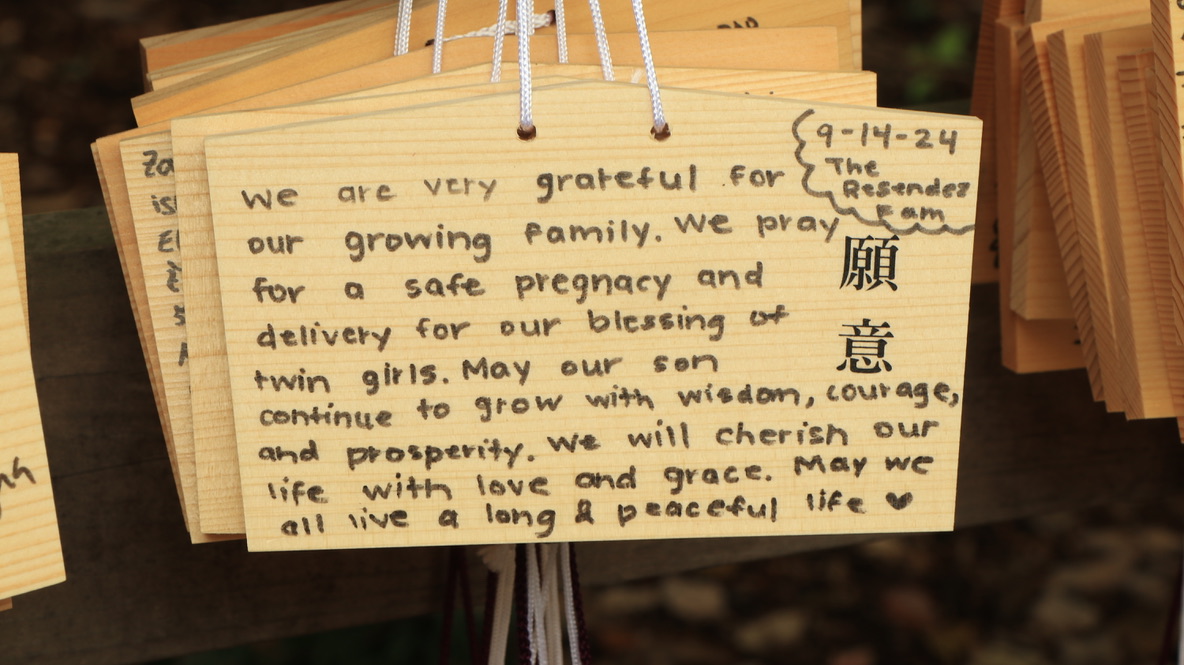 9-14-24
The
Resendez
Fam
We are very grateful for
our growing family. We pray
for a safe pregnacy and
delivery for our blessing of
twin girls. May our son
continue to grow with wisdom, courage,
and prosperity. We will cherish our
life with love and grace. May we
all live a long & peaceful life ♥
願
意